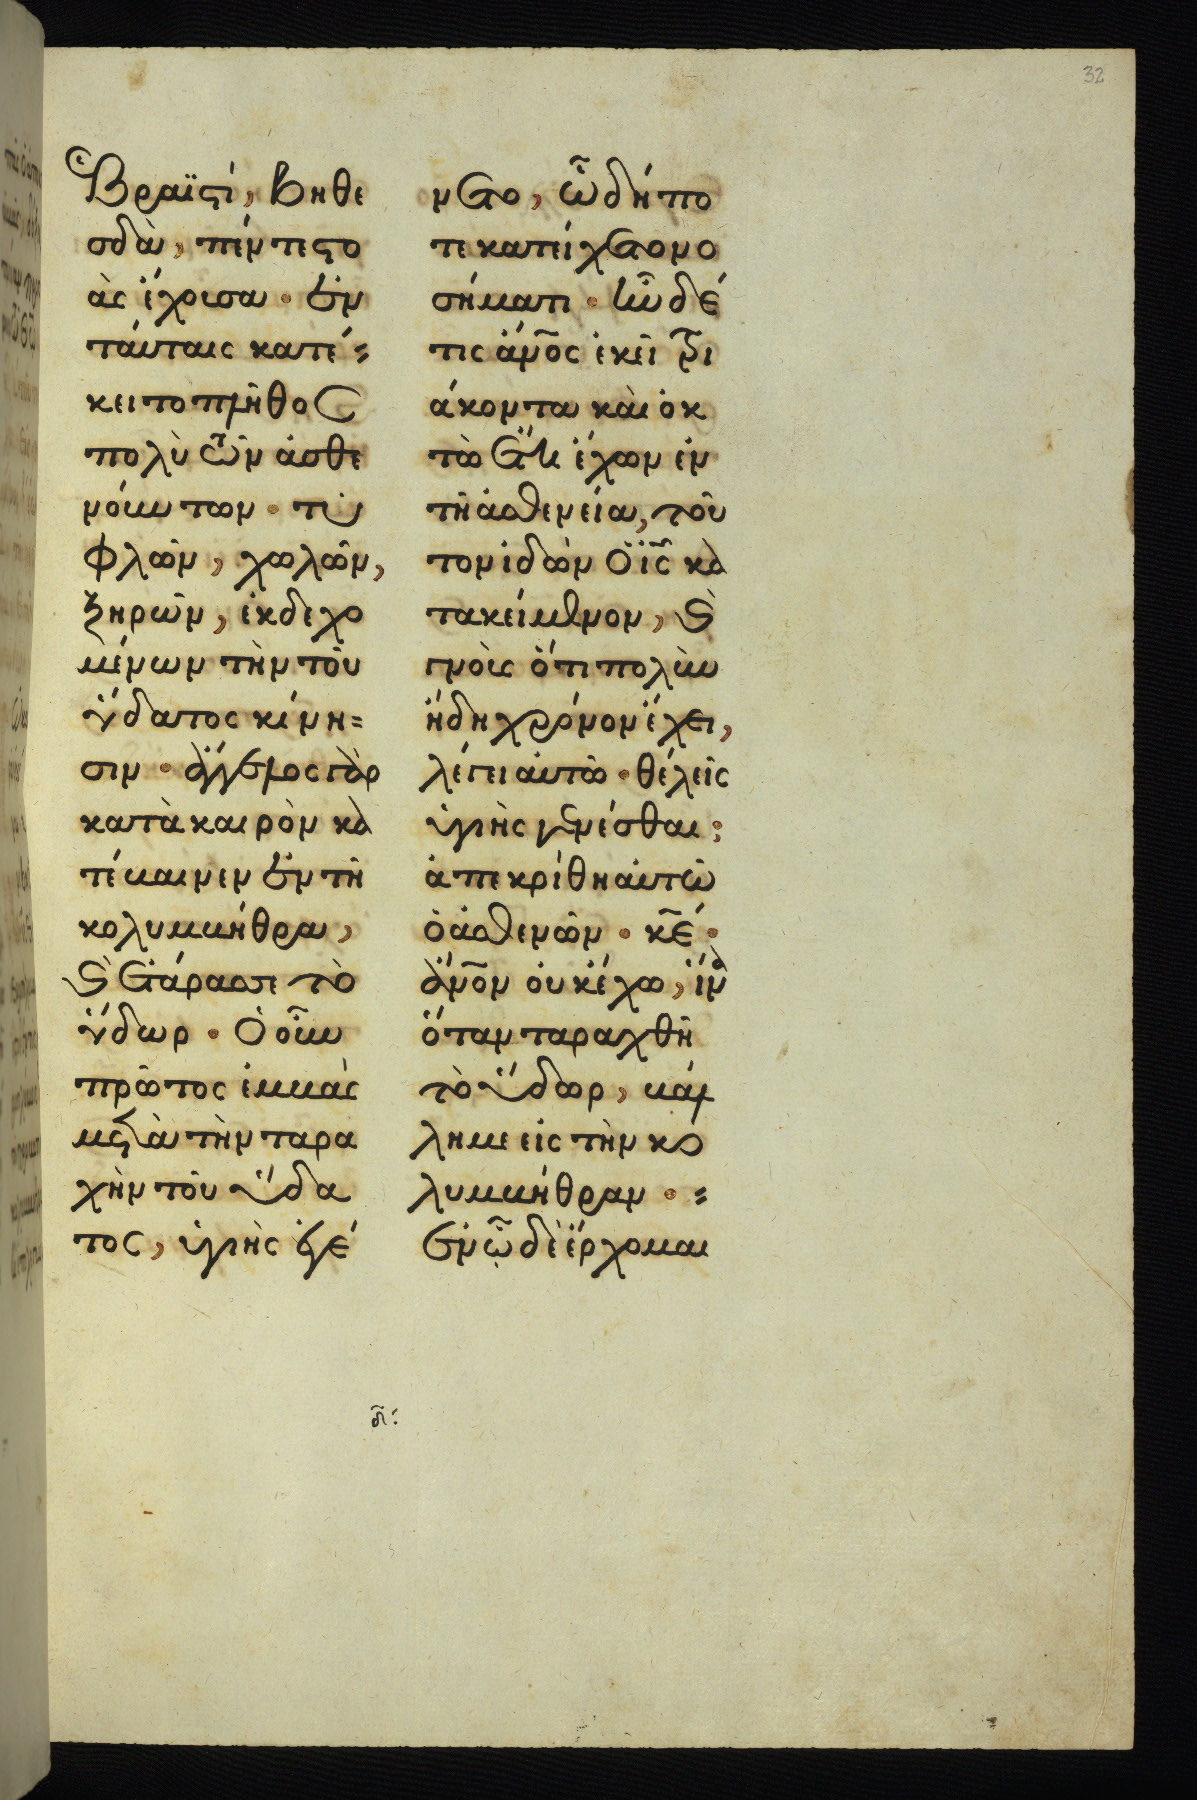 32
Ἑβραϊστί, Βηθε
σδὰ, πέντε στο
ὰς ἔχουσα · ἐν
ταύταις κατέ=
κειτο πλῆθος
πολὺ τῶν ἀσθε
νούντων · τυ
φλῶν, χωλῶν,
ξηρῶν, ἐκδεχο
μένων τὴν τοῦ
ὕδατος κίνη=
σιν · ἄγγελος γὰρ
κατὰ καιρὸν κα
τέβαινεν ἐν τῆ
κολυμβήθρα,
καὶ ἐτάρασσε τὸ
ὕδωρ · Ὁ οὖν
πρῶτος ἐμβὰς
μετὰ τὴν ταρα
χὴν τοῦ ὕδα
τος, ὑγιὴς ἐγέ
νετο, ὧ δήπο
τε κατείχετο νο
σήματι · ἦν δέ
τις ἄνος ἐκεῖ τρι
άκοντα καὶ ὀκ
τὼ ἔτη ἔχων ἐν
τῆ ἀσθενεία, τοῦ
τον ἰδὼν ὁ ις κα
τακείμενον, καὶ
γνοὺς ὅτι πολὺν
ἤδη χρόνον ἔχει,
λέγει αὐτῶ · θέλεις
ὑγιὴς γενέσθαι;
ἀπεκρίθη αὐτῶ
ὁ ἀσθενῶν · κε ·
ἄνον οὐκ ἔχω, ἵνα
ὅταν ταραχθῆ
τὸ ὕδωρ, βάλ
λη με εἰς τὴν κο
λυμβήθραν · =
ἐν ὧ δὲ ἔρχομαι